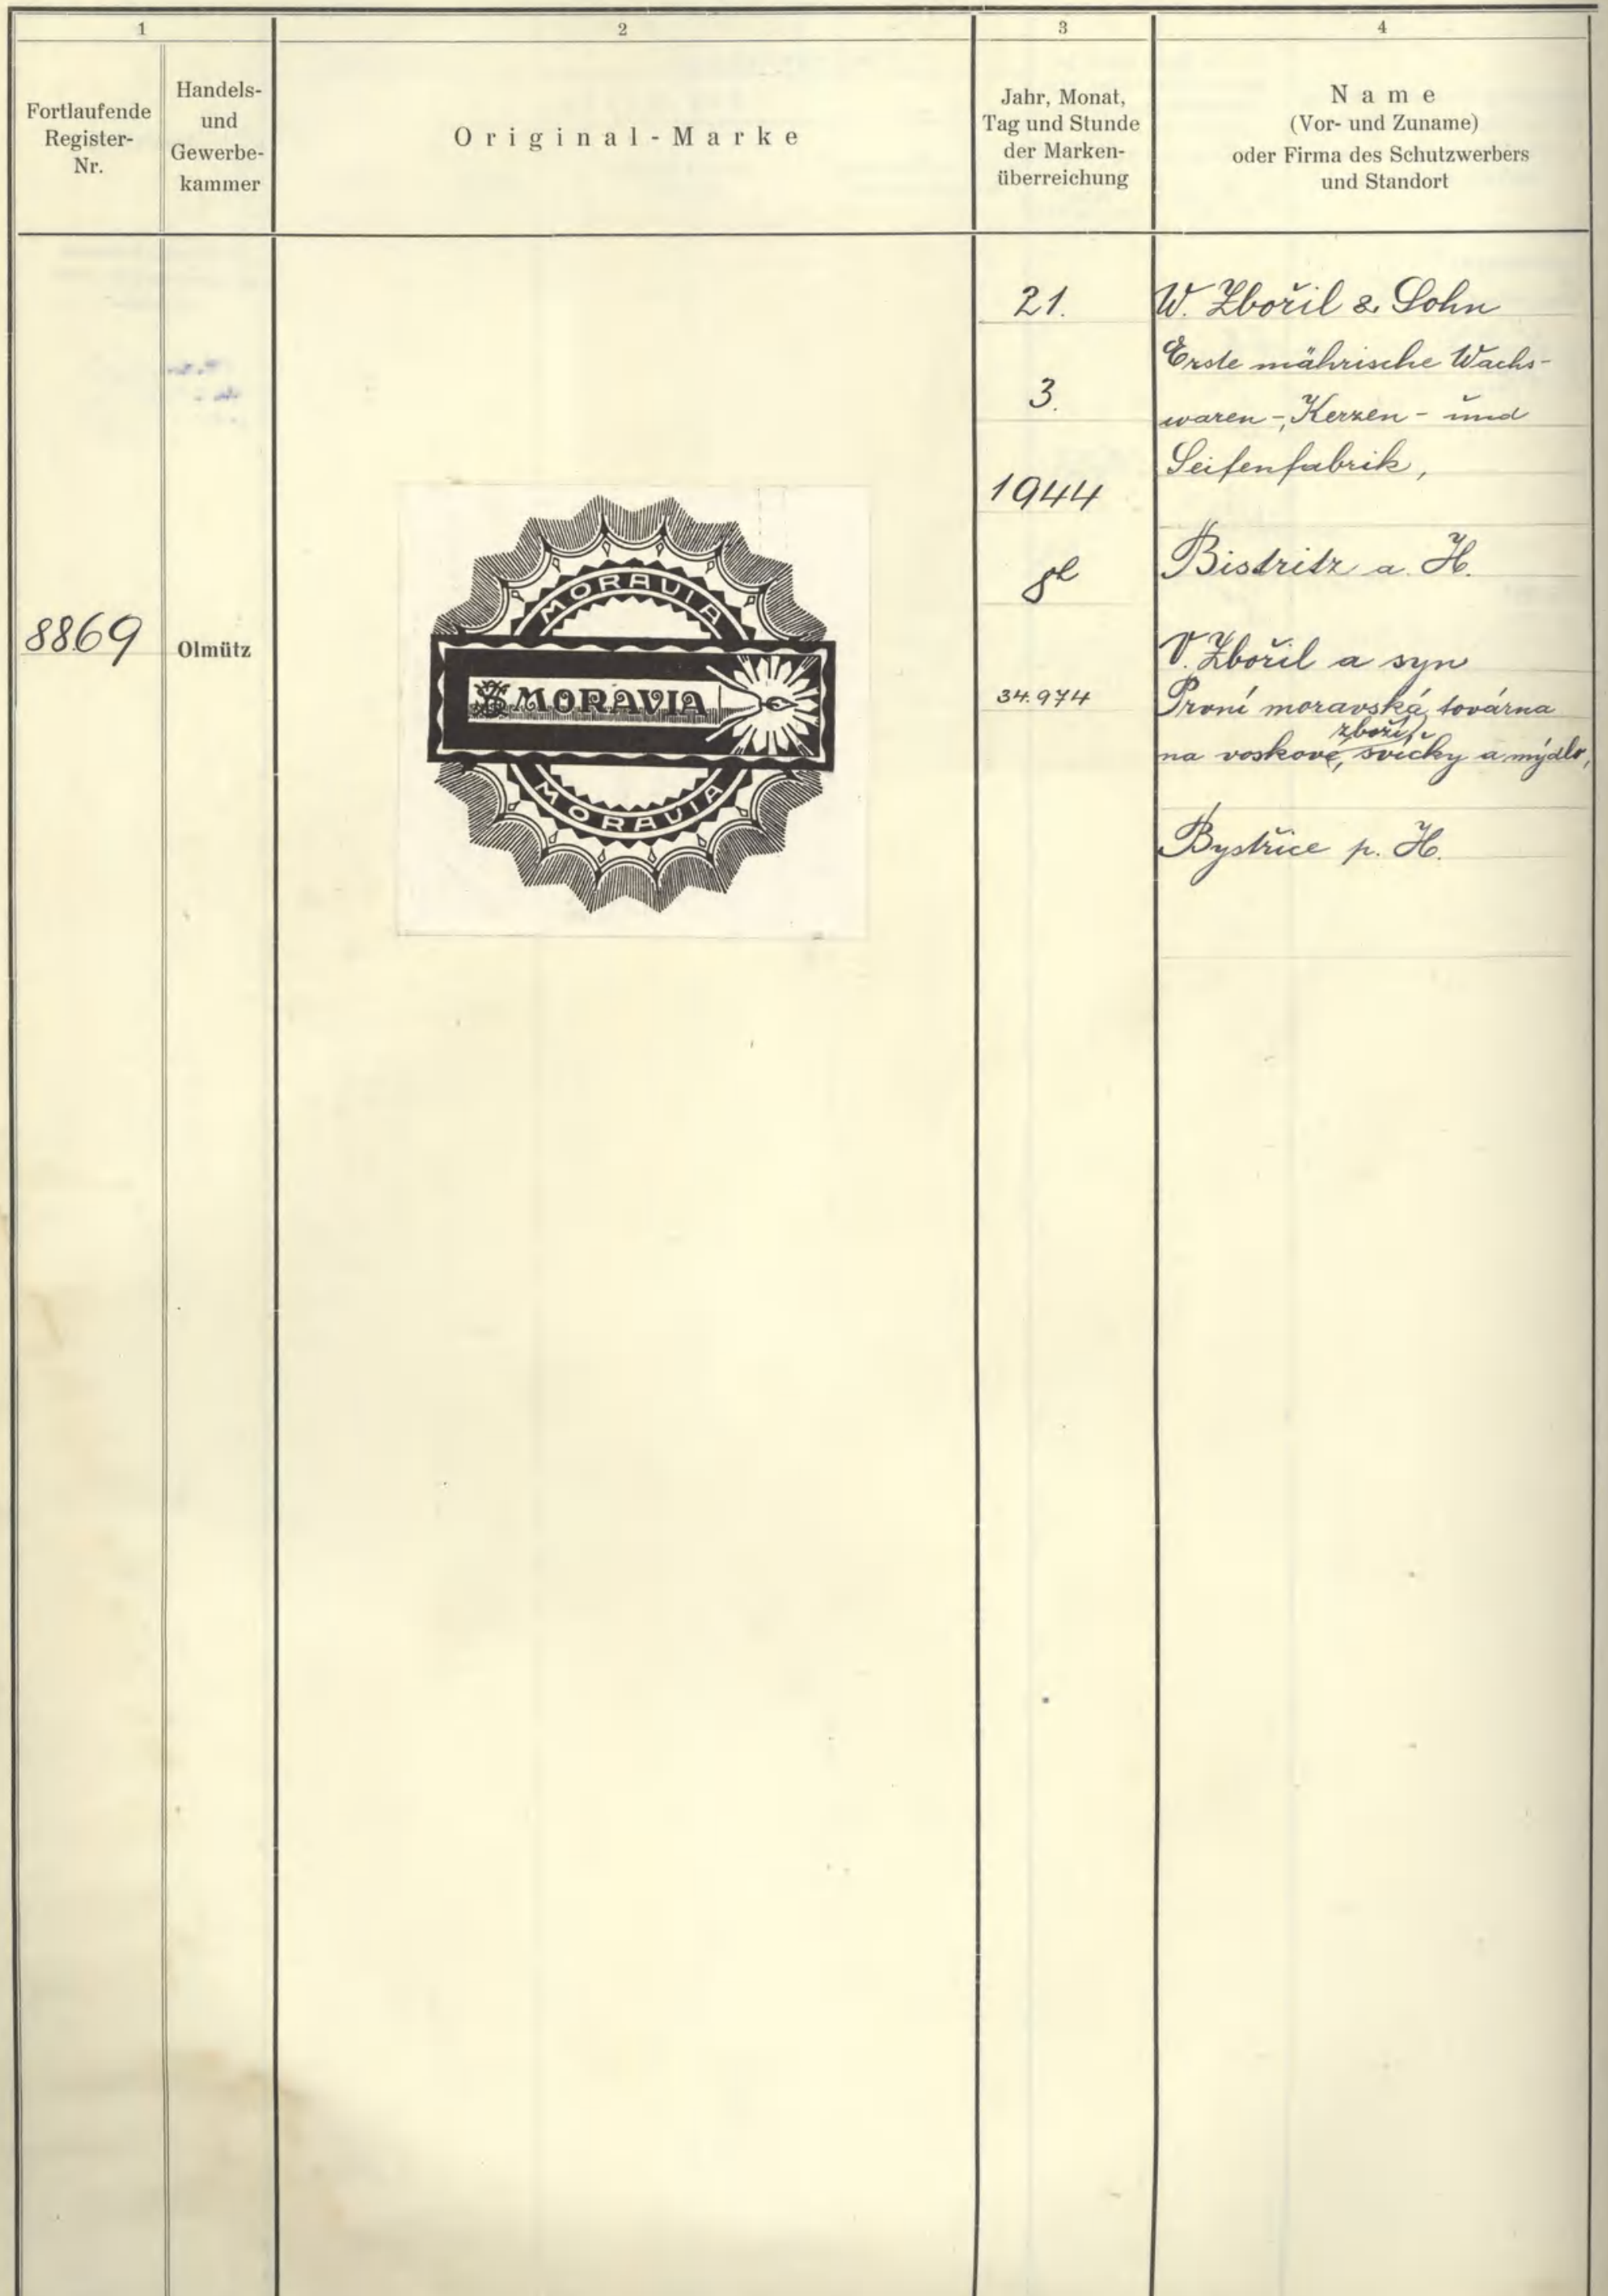 1
2
3
4
Fortlaufende
Register-
Nr.
Handels-
und
Gewerbe-
kammer
Original-Marke
Jahr, Monat,
Tag und Stunde
der Marken-
überreichung
Name
(Vor- und Zuname)
oder Firma des Schutzwerbers
und Standort
8869
Olmütz
MORAVIA
MORAVIA
MORAVIA
21.
3.
1944
8h
34.974
W. Zbořil & Sohn
Erste mährische Wachs-
waren-, Kerzen- und
Seifenfabrik,
Bistritz a. H.
V. Zbořil a syn
První moravská továrna
zboží,
na voskové, svíčky a mýdlo,
Bystřice p. H.